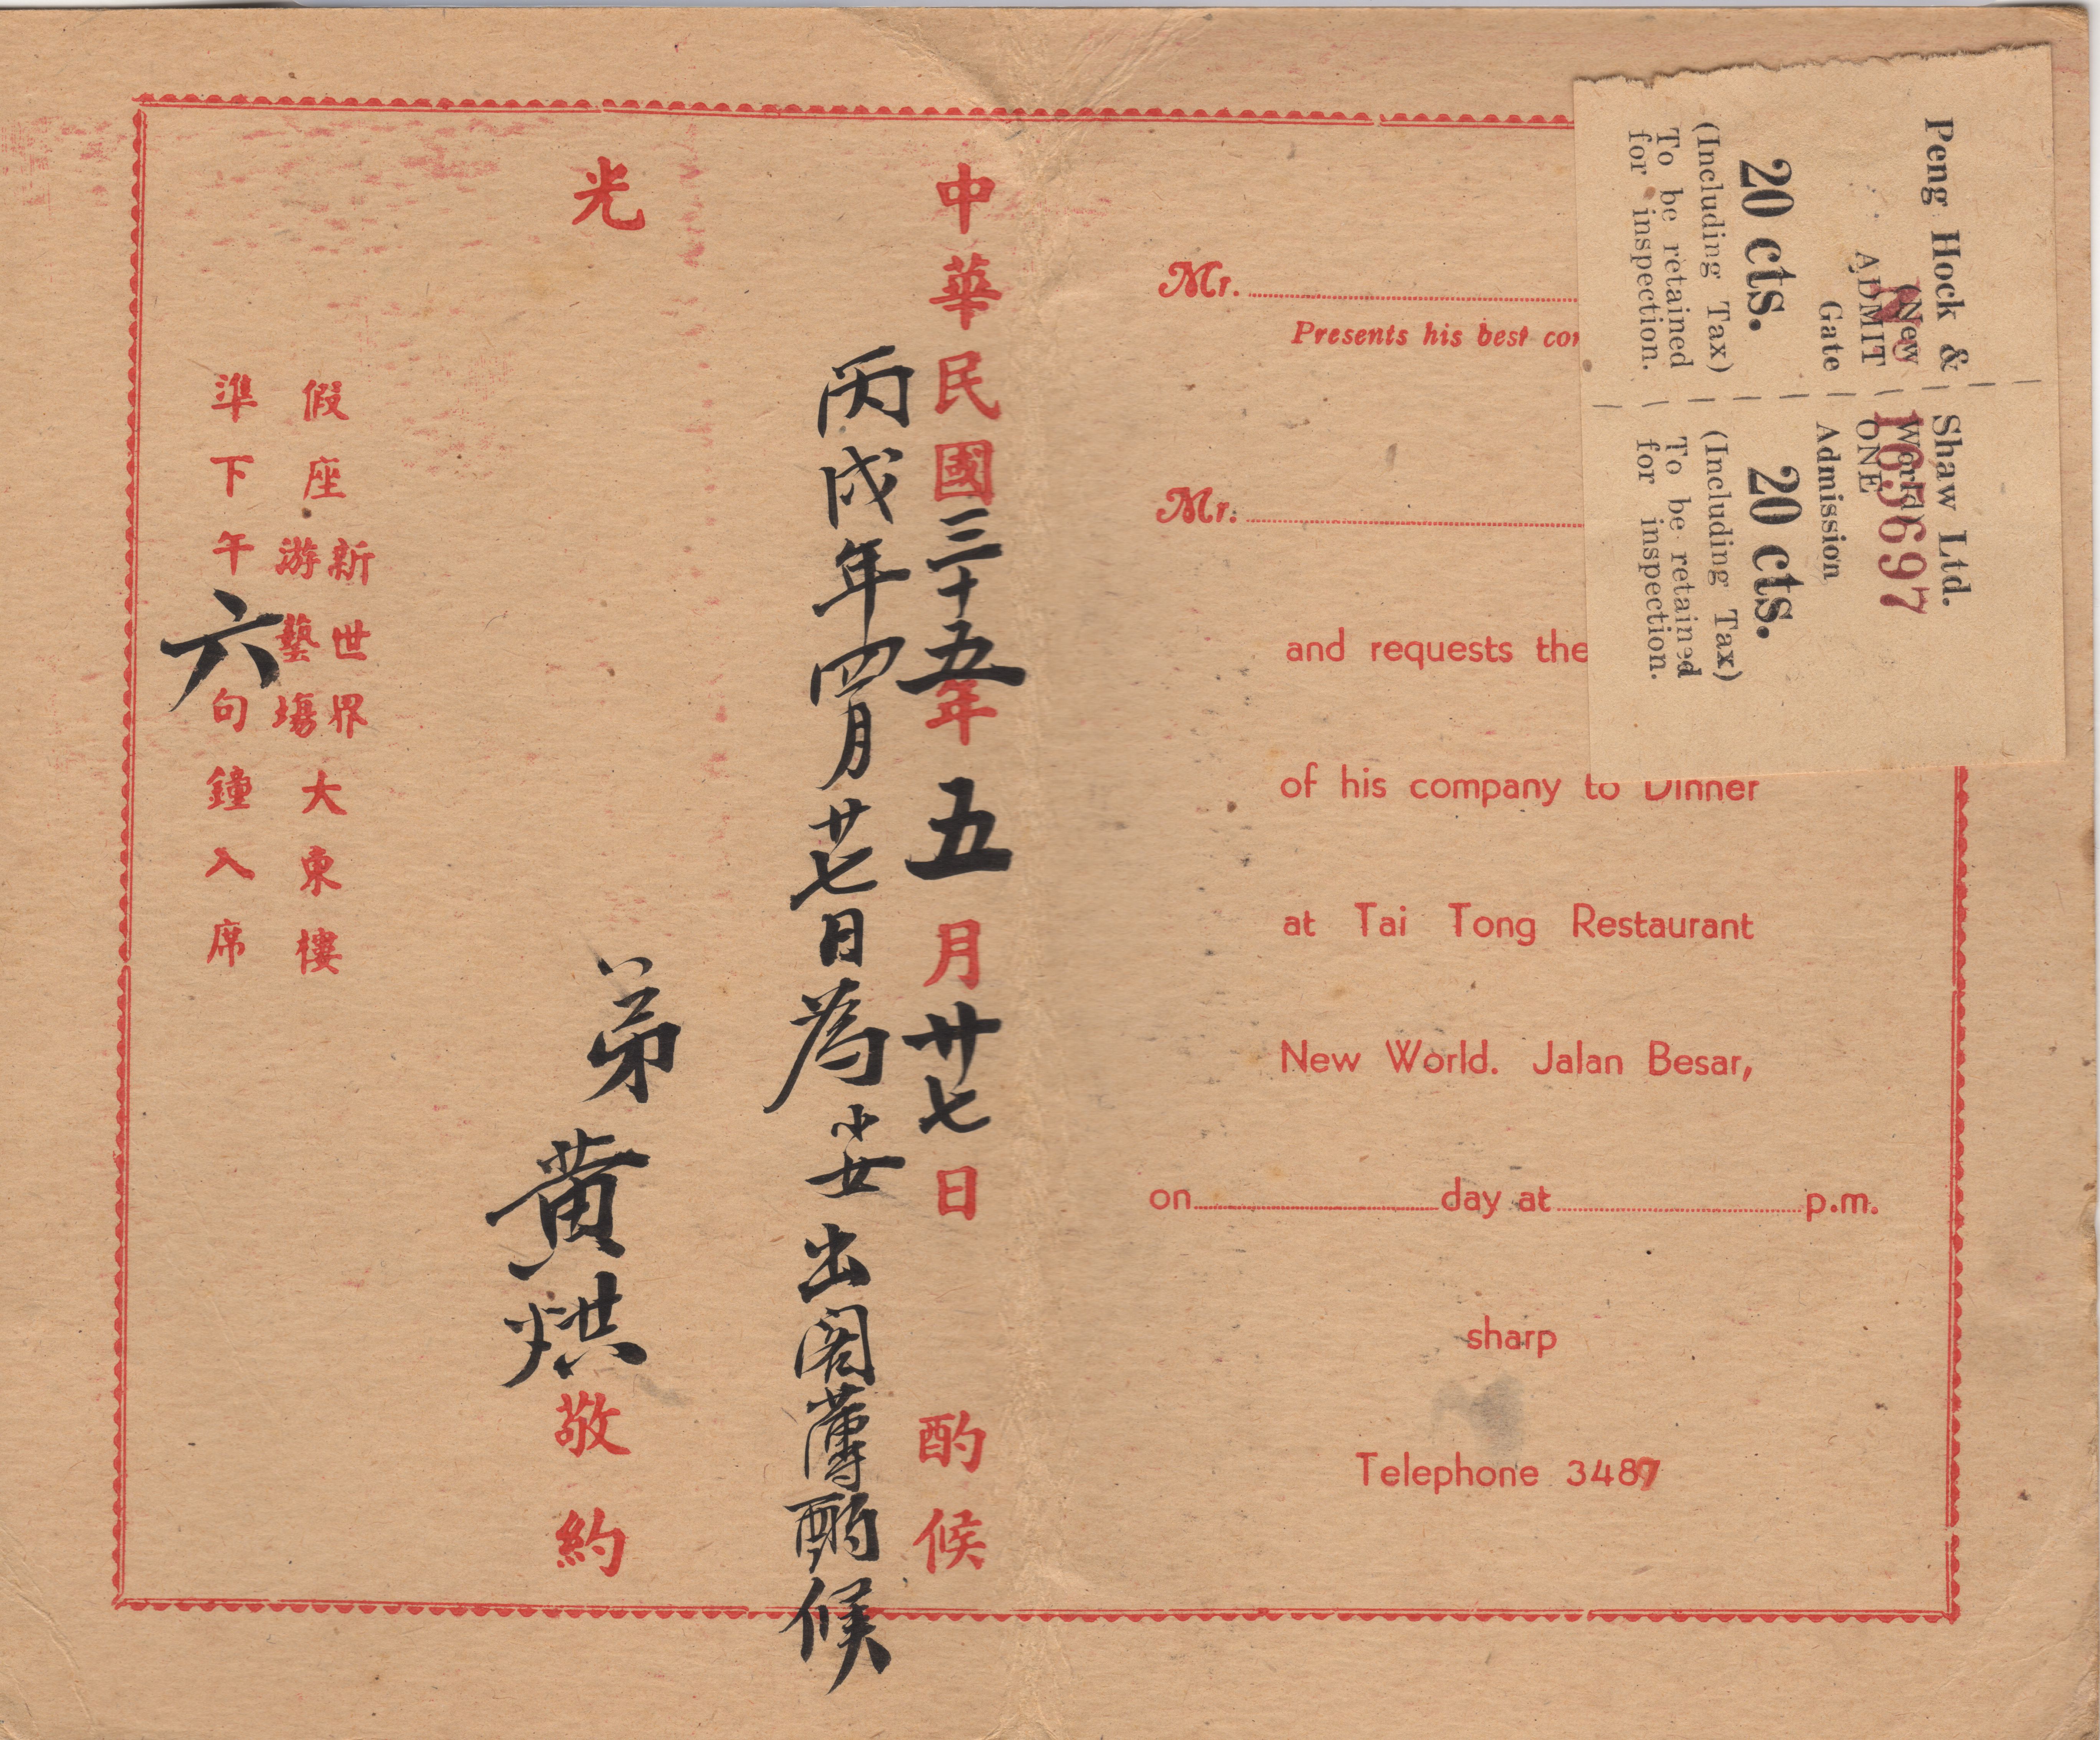 中華民國三十五年五月廿七日 酌候
丙戌年四月廿七日為小女出阁薄酌候
光
弟黄烘敬約
假座新世界游藝塲大東樓
準下午六句鐘入席
Mr.
Presents his best
Mr.
and requests the
of his company to Dinner
at Tai Tong Restaurant
New World. Jalan Besar,
on day at p.m.
sharp
Telephone 3487
Peng Hock & Shaw Ltd.
(New World)
No 165697
ADMIT ONE
Gate Admission
20 cts. 20 cts.
(Including Tax) (Including Tax)
To be retained To be retained
for inspection. for inspection.